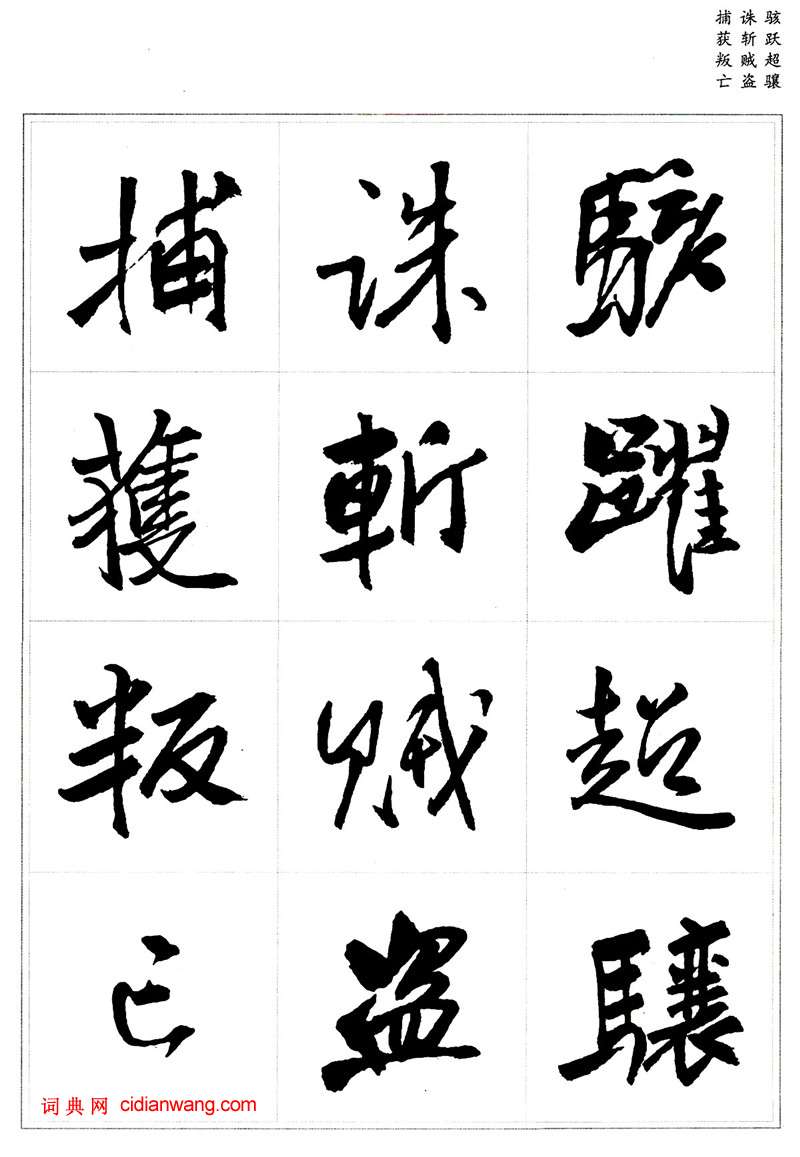 骇跃超骧
诛斩贼盗
捕获叛亡
駭躍超驤
誅斬賊盜
捕獲叛亡
词典网 cidianwang.com